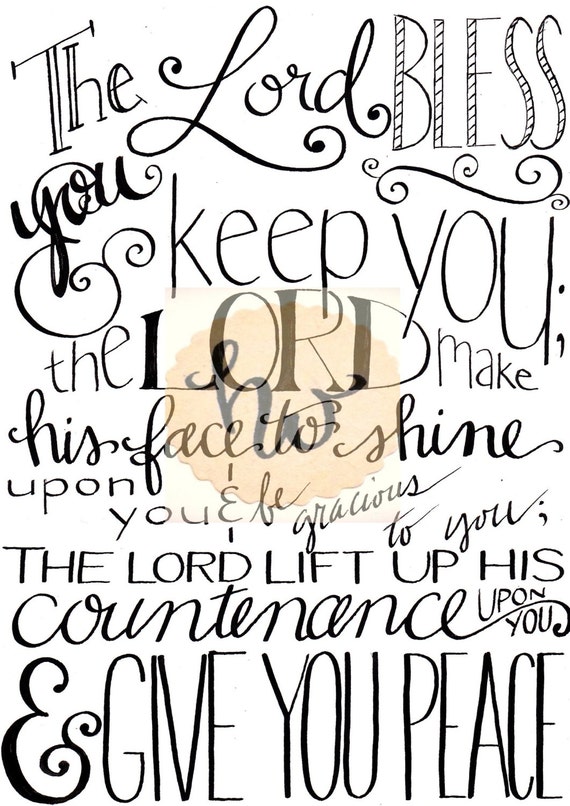 The Lord BLESS
you
& keep you;
the LORD make
his face to shine
upon
you & be gracious
to you;
THE LORD LIFT UP HIS
countenance UPON
YOU
& GIVE YOU PEACE
hw